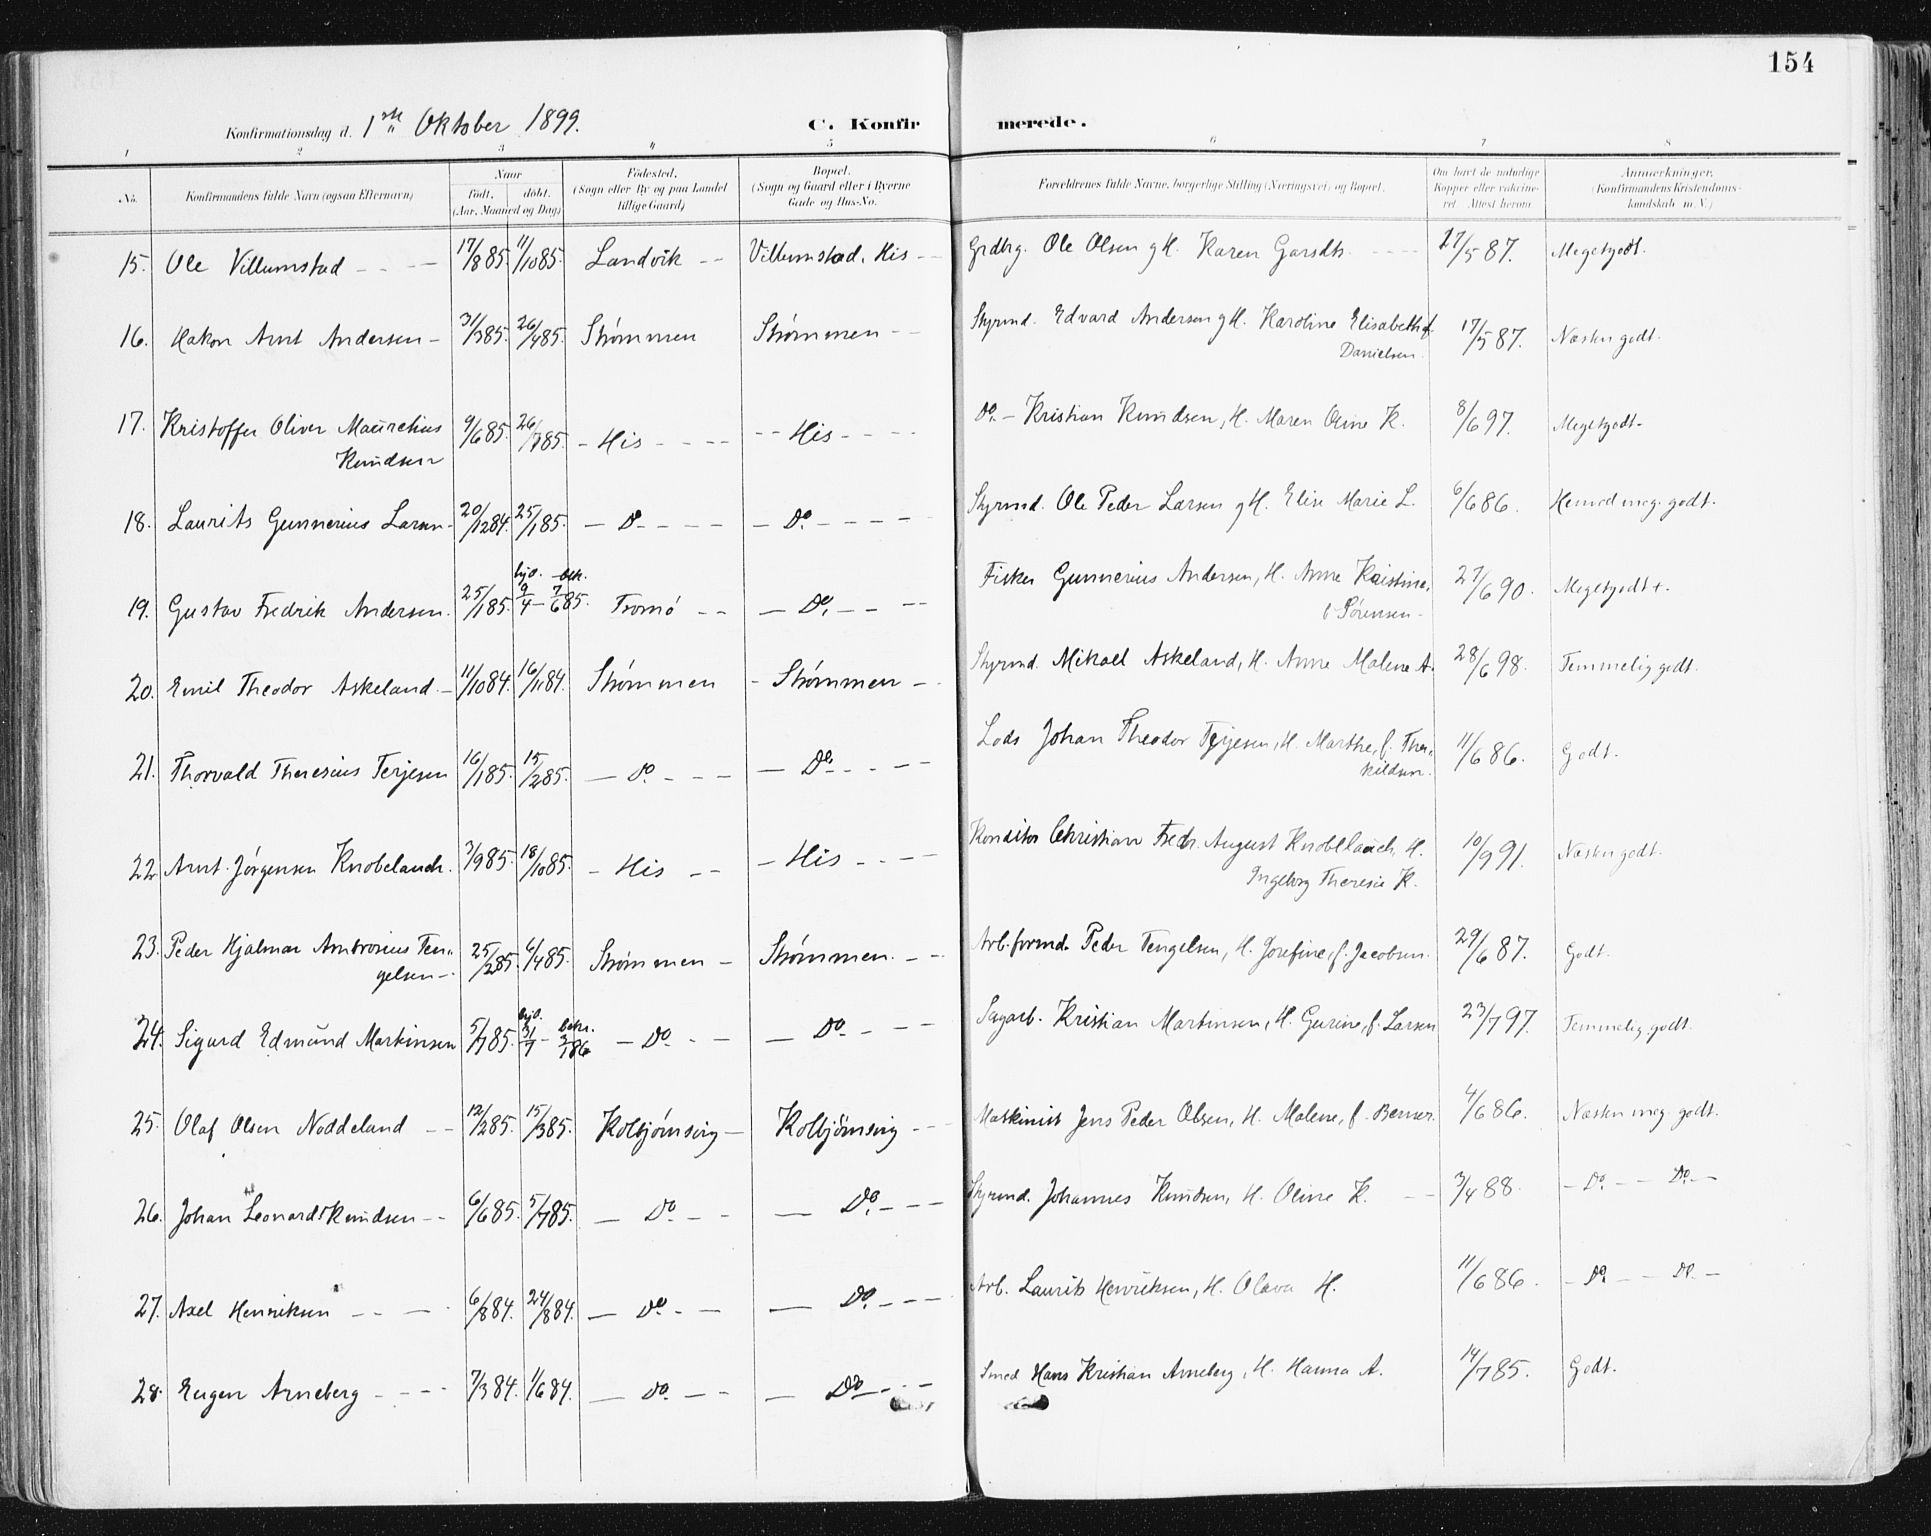 154
Konfirmationsdag d. 1ste Oktober 1899.
C. Konfirmerede.
1 2 3 4 5 6 7 8
No. Konfirmandens fulde Navn (ogsaa Efternavn) Naar födt, döbt. (Aar, Maaned og Dag) Födested. (Sogn eller By og paa Landet tillige Gaard) Bopæl. (Sogn og Gaard eller i Byerne Gade og Hus-No. Forældrenes fulde Navne, borgerlige Stilling (Næringsvei) og Bopæl. Om havt de naturlige Kopper eller vakcineret. Attest herom Anmærkninger. (Konfirmandens Kristendomskundskab m. V.)
15. Ole Villumstad 17/8 85. 11/10 85. Landvik Villumstad, His Grdbrg. Ole Olsen g H. Karen Garsdtr. 27/5 87. Megetgodt.
16. Hakon Arnt Andersen 31/3 85. 26/4 85. Strømmen Strømmen Styrmd. Edvard Andersen g H. Karoline Elisabeth f. 17/5 87. Næsten godt.
Danielsen.
17. Kristoffer Oliver Mauretius 9/6 85. 26/7 85. His His Do. Kristian Knudsen, H. Maren Oline K. 8/6 97. Megetgodt
Knudsen
18. Laurits Gunnerius Larsen 20/12 84. 25/1 85. Do Do. Styrmd. Ole Peder Larsen g H. Elise Marie L. 6/6 86. Henved meg. godt.
19. Gustav Fredrik Andersen. 25/1 85. hjd. 9/4 – bekr. 7/6 85. Tromö Do. Fisker Gunnerius Andersen, H. Anne Kristine, 27/6 90. Megetgodt+.
f Sörensen
20. Emil Theodor Askeland 11/10 84. 16/11 84. Strømmen Strømmen Styrmd. Mikael Askeland, H. Anne Malene A. 28/6 98. Temmelig godt.
21. Thorvald Theresius Terjesen 16/1 85. 15/2 85. Do Do. Lods Johan Theodor Terjesen, H. Marthe, f. Ther- 11/6 86. Godt.
kildsen.
22 Arnt Jörgensen Knobelauch. 3/9 85. 18/10 85. His His Konditor Christian Fredr. August Knobelauch, H. 10/9 91. Næsten godt.
Ingeborg Theresie K.
23. Peder Hjalmar Ambrosius Ten- 25/2 85. 6/4 85. Strømmen Strømmen. Arb.formd. Peder Tengelsen, H. Josefine, f. Jacobsen. 29/6 87. Godt.
gelsen
24. Sigurd Edmund Martinsen 5/7 85. hjd. 31/7 – bekr. 3/1 86 Do Do Sagarb. Kristian Martinsen, H. Gurine, f. Larsen 23/7 97. Temmelig godt.
25. Olaf Olsen Noddeland 12/2 85. 15/3 85. Kolbjørnsvig Kolbjörnsvig Maskinist Jens Peder Olsen, H. Malene, f. Berner. 4/6 86. Næsten meg. godt.
26. Johan Leonard Knudsen 6/6 85. 5/7 85. Do Do. Styrmd. Johannes Knudsen, H. Oline K. 3/4 88. Do. Do.
27. Axel Henriksen 6/8 84. 24/8 84. Do Do. Arb. Laurits Henriksen, H. Olava H. 11/6 86. Do. Do.
28. Eugen Arneberg 7/3 84. 1/6 84. Do. Do Smed Hans Kristian Arneberg, H. Hanna A. 14/7 85. Godt.